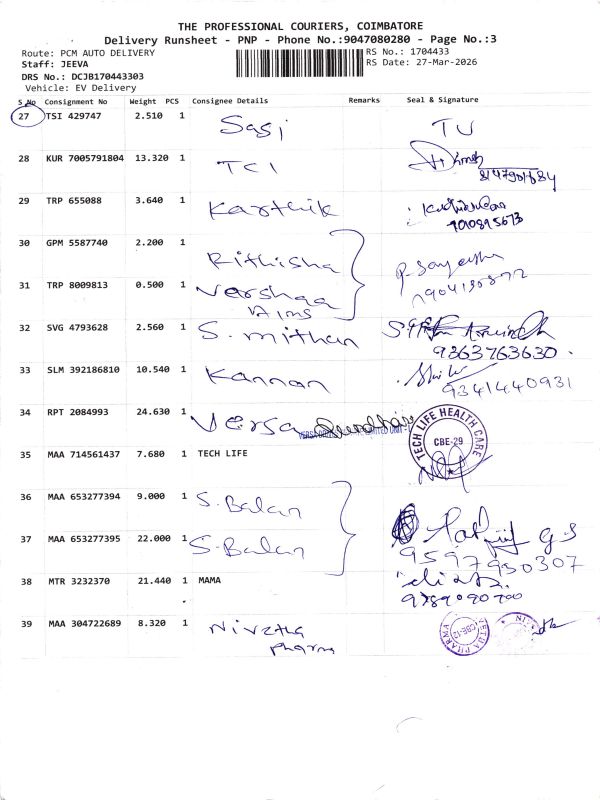 THE PROFESSIONAL COURIERS, COIMBATORE
Delivery Runsheet - PNP - Phone No.:9047080280 - Page No.:3
Route: PCM AUTO DELIVERY
RS No.: 1704433
Staff: JEEVA
RS Date: 27-Mar-2026
DRS No.: DCJB170443303
Vehicle: EV Delivery
S.No Consignment No Weight PCS Consignee Details Remarks Seal & Signature
27 TSI 429747 2.510 1 Sasi TU
28 KUR 7005791804 13.320 1 TCI
29 TRP 655088 3.640 1 Karthik
30 GPM 5587740 2.200 1 Rithisha
31 TRP 8009813 0.500 1 Varshaa
32 SVG 4793628 2.560 1 S. mithan
9363763630
33 SLM 392186810 10.540 1 Kannan
9341440931
34 RPT 2084993 24.630 1 Versa
TECH LIFE HEALTH CARE
CBE-29
35 MAA 714561437 7.680 1 TECH LIFE
36 MAA 653277394 9.000 1 S. Balan
37 MAA 653277395 22.000 1 S. Balan
9597930307
38 MTR 3232370 21.440 1 MAMA
9789090700
39 MAA 304722689 8.320 1 Nivetha
pharma
CBE-12